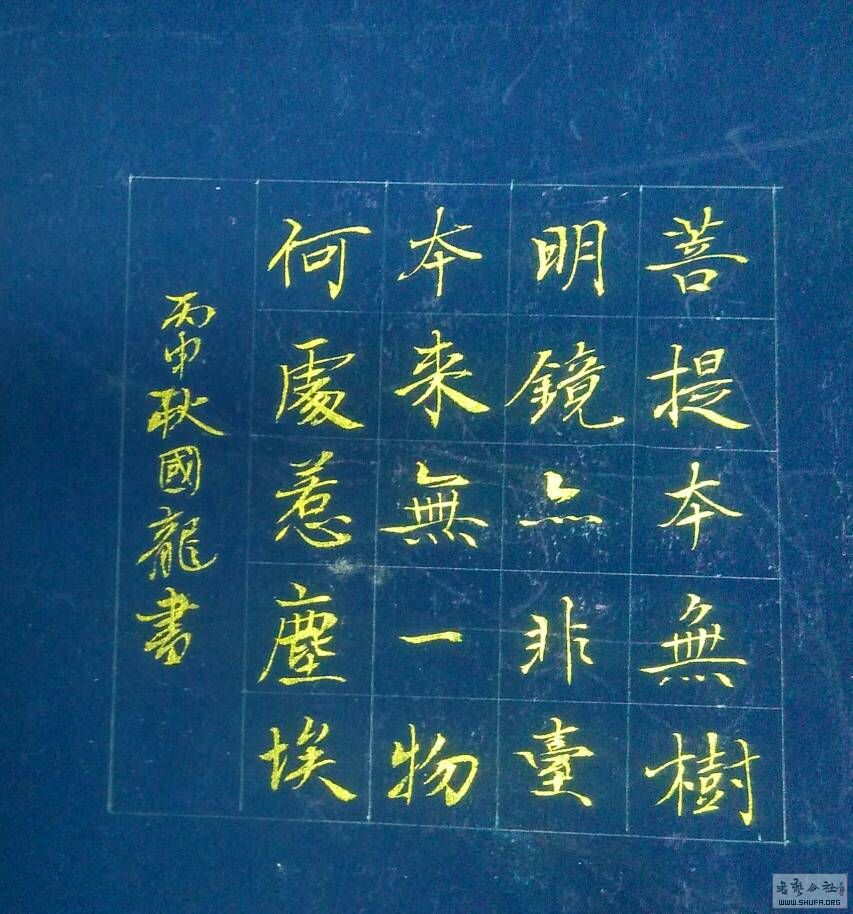 菩提本無樹
明鏡亦非臺
本來無一物
何處惹塵埃
丙申秋國龍書
WWW.SHUFA.ORG